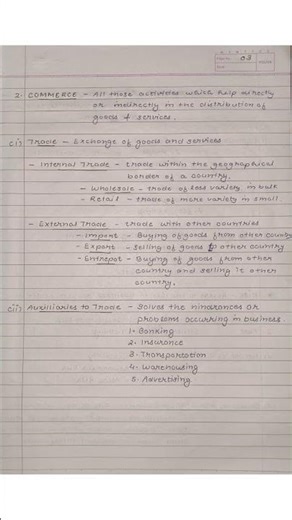 03
2. COMMERCE - All those activities which help directly
or indirectly in the distribution of
goods & services.
(i) Trade - Exchange of goods and services
- Internal Trade - trade within the geographical
border of a country.
- Wholesale - trade of less variety in bulk
- Retail - trade of more variety in small
- External Trade - trade with other countries
- Import - Buying of goods from other country
- Export - Selling of goods to other country
- Entrepot - Buying of goods from other
country and selling it other
country.
(ii) Auxiliaries to Trade - Solves the hindrances or
problems occurring in business
1. Banking
2. Insurance
3. Transportation
4. Warehousing
5. Advertising